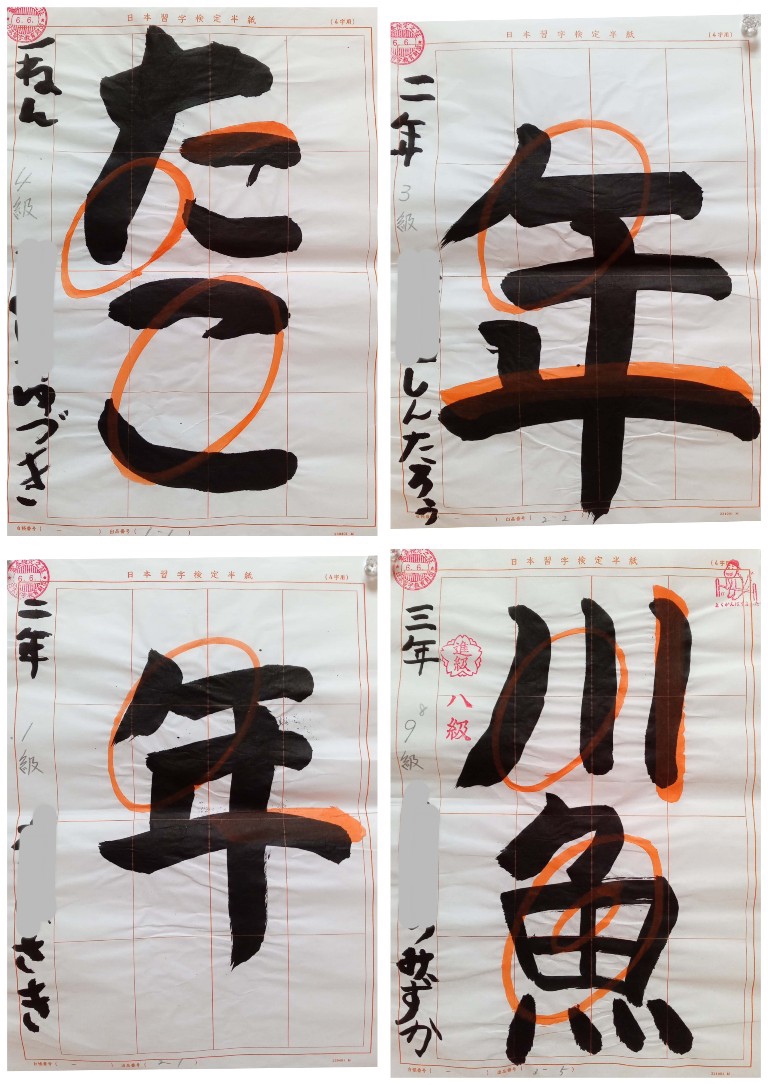 6.6.
日本習字検定半紙
(4字用)
一ねん
4級
ゆづき
たこ
1-1
6.6.
日本習字検定半紙
(4字用)
二年
3級
しんたろう
年
出品番号( 2-2 )
6.6.
日本習字検定半紙
(4字用)
二年
1級
さき
年
2-1
6.6.
日本習字検定半紙
(4字用)
三年
進級
八級
8
9級
みずか
川魚